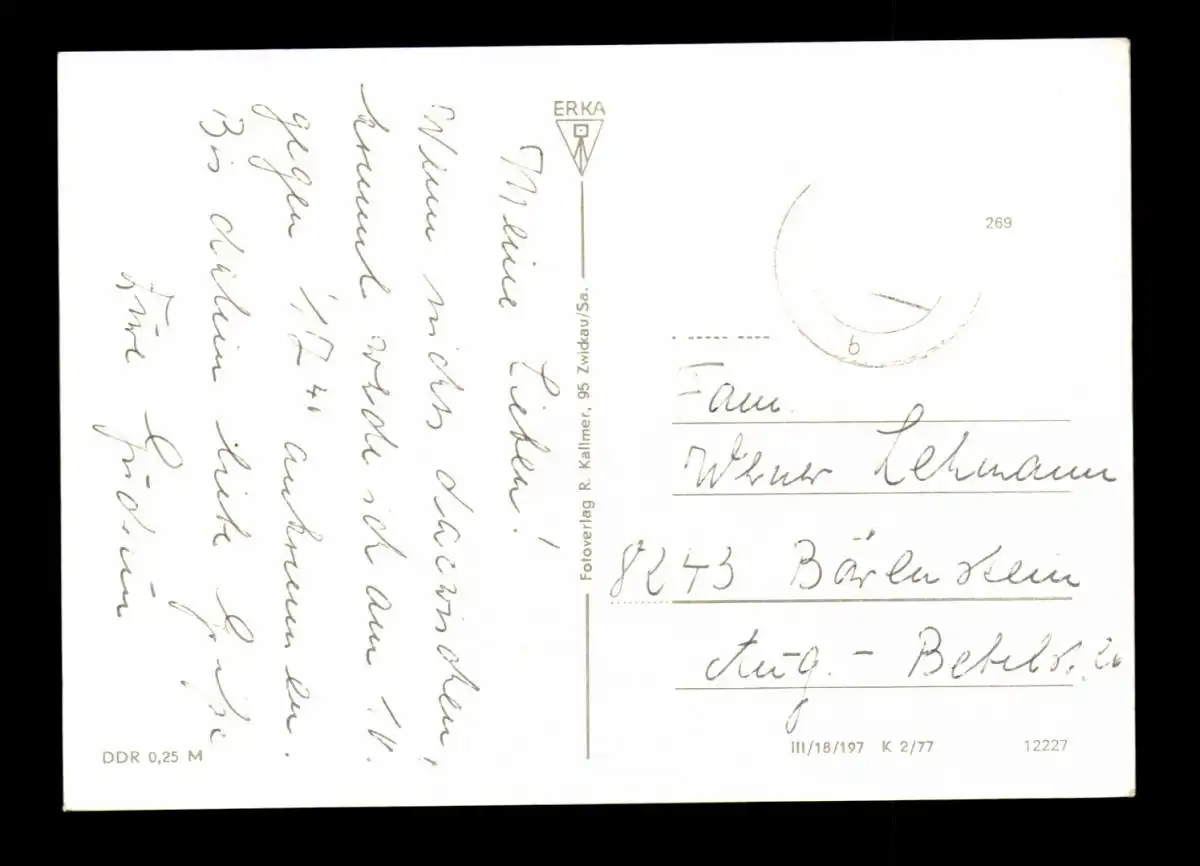 Meine Lieben!
Wenn nichts dazwischen
kommt werde ich am 10.
gegen 17 40 ankommen.
Bis dahin liebe Grüße
Eure
ERKA
Fotoverlag R. Kallmer, 95 Zwickau/Sa.
269
b
Fam.
Werner Lehmann
8243 Bärenstein
Aug.-Bebelstr.
DDR 0,25 M
III/18/197 K 2/77
12227